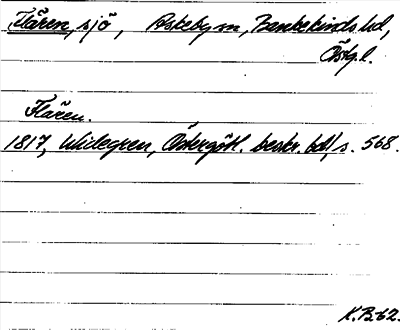 Flären, sjö, Askeby sn, Bankekinds hd,
Östg. l.
Flären.
1817, Widegren, Östergötl. beskr. bd 1, s. 568.
K.B. 62.